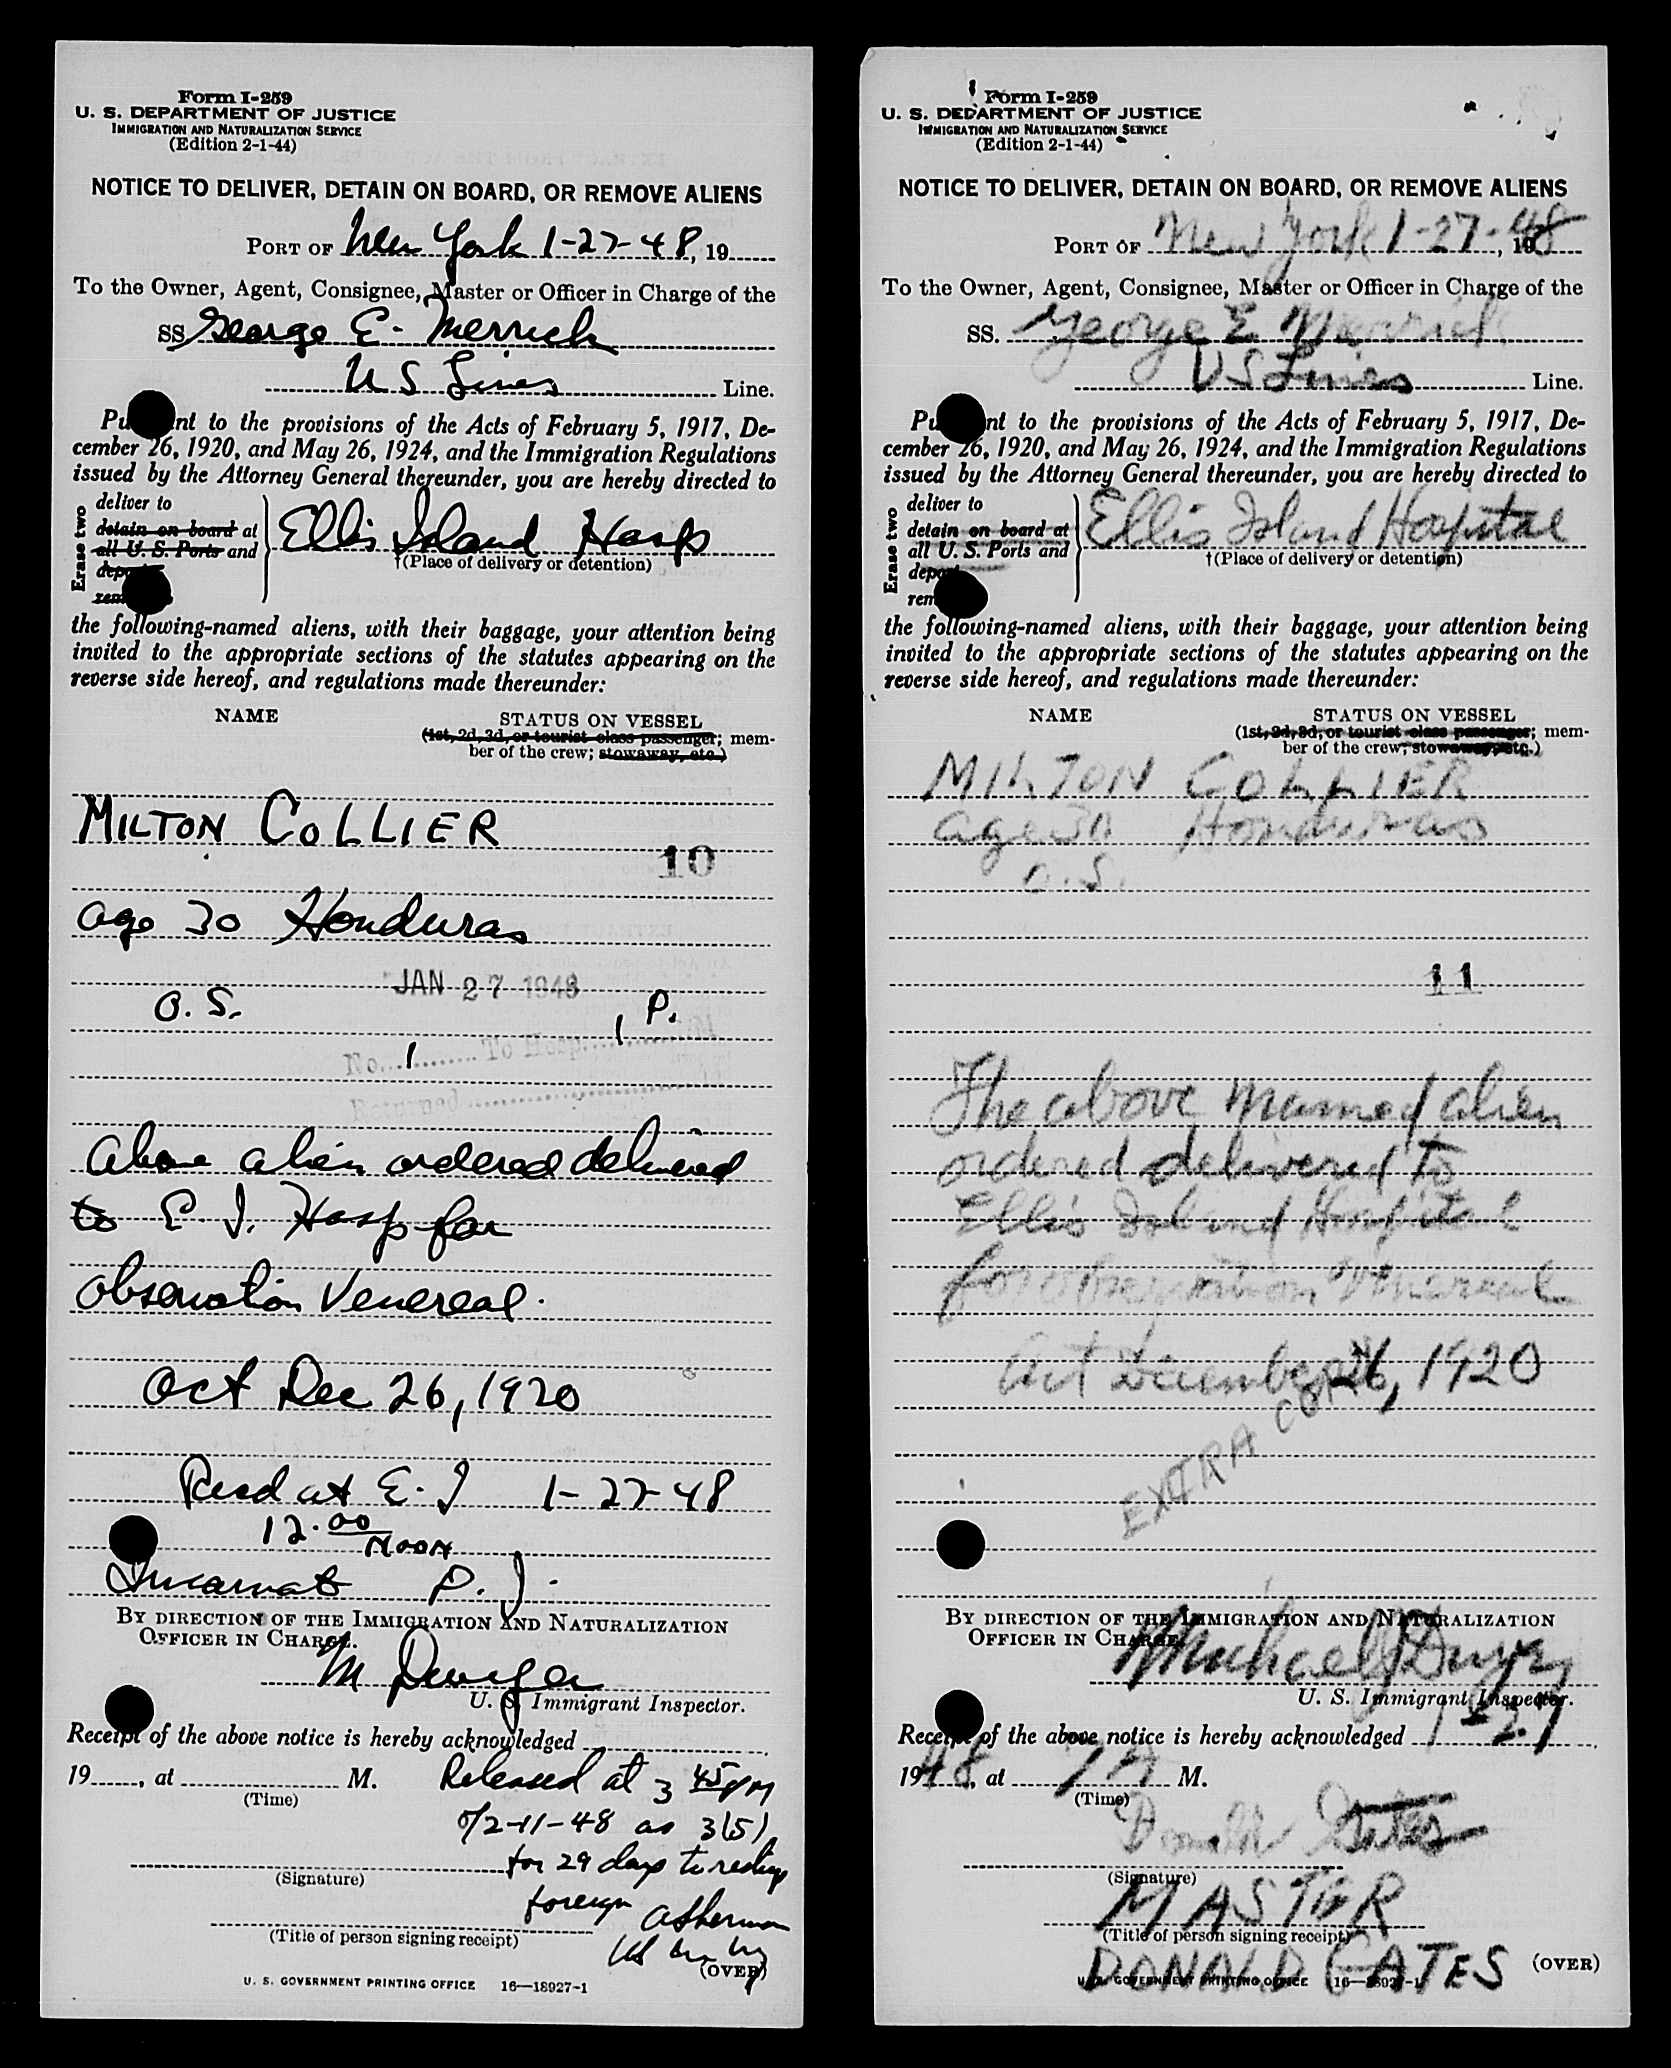 Form I-259
U. S. DEPARTMENT OF JUSTICE
IMMIGRATION AND NATURALIZATION SERVICE
(Edition 2-1-44)
NOTICE TO DELIVER, DETAIN ON BOARD, OR REMOVE ALIENS
PORT OF New York 1-27-48, 19
To the Owner, Agent, Consignee, Master or Officer in Charge of the
SS George E. Merrick
U S Lines Line.
Pu nt to the provisions of the Acts of February 5, 1917, De-
cember 26, 1920, and May 26, 1924, and the Immigration Regulations
issued by the Attorney General thereunder, you are hereby directed to
Erase two
deliver to
detain on board at
all U. S. Ports and
depo
rem
Ellis Island Hosp
†(Place of delivery or detention)
the following-named aliens, with their baggage, your attention being
invited to the appropriate sections of the statutes appearing on the
reverse side hereof, and regulations made thereunder:
NAME STATUS ON VESSEL
(1st, 2d, 3d, or tourist class passenger; mem-
ber of the crew; stowaway, etc.)
MILTON COLLIER
10
age 30 Honduras
JAN 27 1948
O. S. 1 P.
No. 1 To Hosp.
Returned
Above alien ordered delivered
to E. I. Hosp for
observation Venereal.
Act Dec 26, 1920
Recd at E. I 1-27-48
12.00 NOON
P. I.
BY DIRECTION OF THE IMMIGRATION AND NATURALIZATION
OFFICER IN CHARGE.
M Dwyer
U. S. Immigrant Inspector.
Receipt of the above notice is hereby acknowledged
19, at M.
(Time)
Released at 3 45 pm
2-11-48 as 3(5)
for 29 days to reship
foreign
(Signature)
(Title of person signing receipt)
(OVER)
U. S. GOVERNMENT PRINTING OFFICE 16—18927-1
Form I-259
U. S. DEPARTMENT OF JUSTICE
IMMIGRATION AND NATURALIZATION SERVICE
(Edition 2-1-44)
NOTICE TO DELIVER, DETAIN ON BOARD, OR REMOVE ALIENS
PORT OF New York 1-27-48, 19
To the Owner, Agent, Consignee, Master or Officer in Charge of the
SS. George E Merrick
U S Lines Line.
Pu nt to the provisions of the Acts of February 5, 1917, De-
cember 26, 1920, and May 26, 1924, and the Immigration Regulations
issued by the Attorney General thereunder, you are hereby directed to
Erase two
deliver to
detain on board at
all U. S. Ports and
depo
rem
Ellis Island Hospital
†(Place of delivery or detention)
the following-named aliens, with their baggage, your attention being
invited to the appropriate sections of the statutes appearing on the
reverse side hereof, and regulations made thereunder:
NAME STATUS ON VESSEL
(1st, 2d, 3d, or tourist class passenger; mem-
ber of the crew; stowaway, etc.)
MILTON COLLIER
age 30 Honduras
O. S.
11
The above named alien
ordered delivered to
Ellis Island Hospital
for observation Venereal
Act December 26, 1920
EXTRA COPY
BY DIRECTION OF THE IMMIGRATION AND NATURALIZATION
OFFICER IN CHARGE.
Michael J Dwyer
U. S. Immigrant Inspector.
Receipt of the above notice is hereby acknowledged 1-27
1948, at 7 A M.
(Time)
Donald Gates
(Signature)
MASTER
(Title of person signing receipt)
DONALD GATES
(OVER)
U. S. GOVERNMENT PRINTING OFFICE 16—18927-1